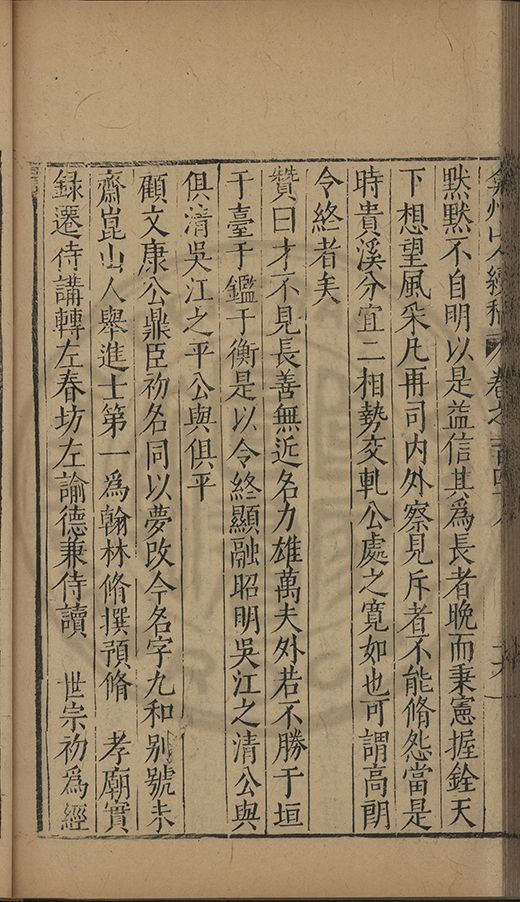 弇州山人續稿 卷之一百四十八
默默不自明以是益信其為長者晚而秉憲握銓天
下想望風采凡再司内外察見斥者不能脩怨當是
時貴溪分宜二相勢交軋公處之寬如也可謂高朗
令終者矣
贊曰才不見長善無近名力雄萬夫外若不勝于垣
于臺于鑑于衡是以令終顯融昭明吳江之清公與
俱清吳江之平公與俱平
顧文康公鼎臣初名同以夢改今名字九和别號未
齋崑山人舉進士第一為翰林脩撰預脩 孝廟實
録遷侍講轉左春坊左諭德兼侍讀 世宗初為經